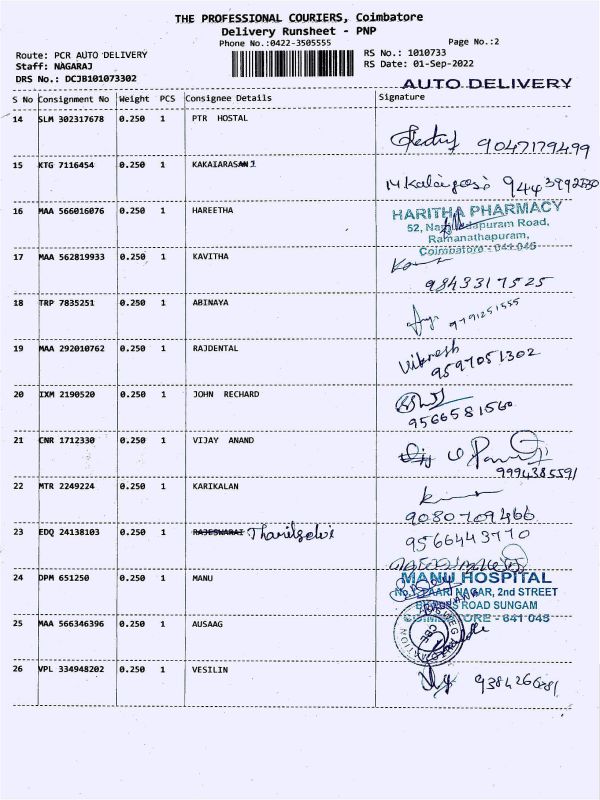 THE PROFESSIONAL COURIERS, Coimbatore
Delivery Runsheet - PNP
Phone No.:0422-3505555 Page No.:2
Route: PCR AUTO DELIVERY RS No.: 1010733
Staff: NAGARAJ RS Date: 01-Sep-2022
DRS No.: DCJB101073302
AUTO DELIVERY
S No Consignment No Weight PCS Consignee Details Signature
14 SLM 302317678 0.250 1 PTR HOSTAL
9047179499
15 KTG 7116454 0.250 1 KAKAIARASAN
16 MAA 566016076 0.250 1 HAREETHA HARITHA PHARMACY
52, Road,
Ramanathapuram,
Coimbatore - 641 045
17 MAA 562819933 0.250 1 KAVITHA
9843317525
18 TRP 7835251 0.250 1 ABINAYA 9791251555
19 MAA 292010762 0.250 1 RAJDENTAL Vikresh
9597051302
20 IXM 2190520 0.250 1 JOHN RECHARD
9566581560
21 CNR 1712330 0.250 1 VIJAY ANAND
9994385591
22 MTR 2249224 0.250 1 KARIKALAN
9080709466
23 EDQ 24138103 0.250 1 RAJESWARAI 9566443770
24 DPM 651250 0.250 1 MANU MANU HOSPITAL
NAGAR, 2nd STREET
ROAD SUNGAM
COIMBATORE - 641 045
25 MAA 566346396 0.250 1 AUSAAG
26 VPL 334948202 0.250 1 VESILIN